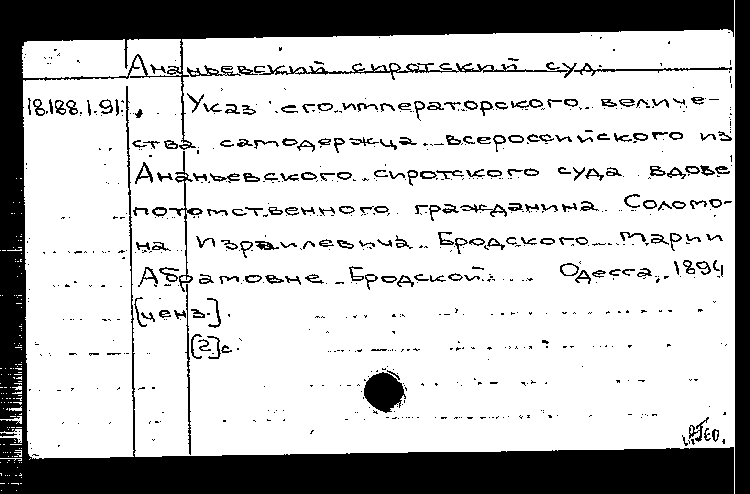 Ананьевский сиротский суд.
18.188.1.91. Указ его императорского величе-
ства, самодержца всероссийского из
Ананьевского сиротского суда вдове
потомственного гражданина Соломо-
на Израилевича Бродского Марии
Абрамовне Бродской. Одесса, 1894
[ценз.].
[2]с.